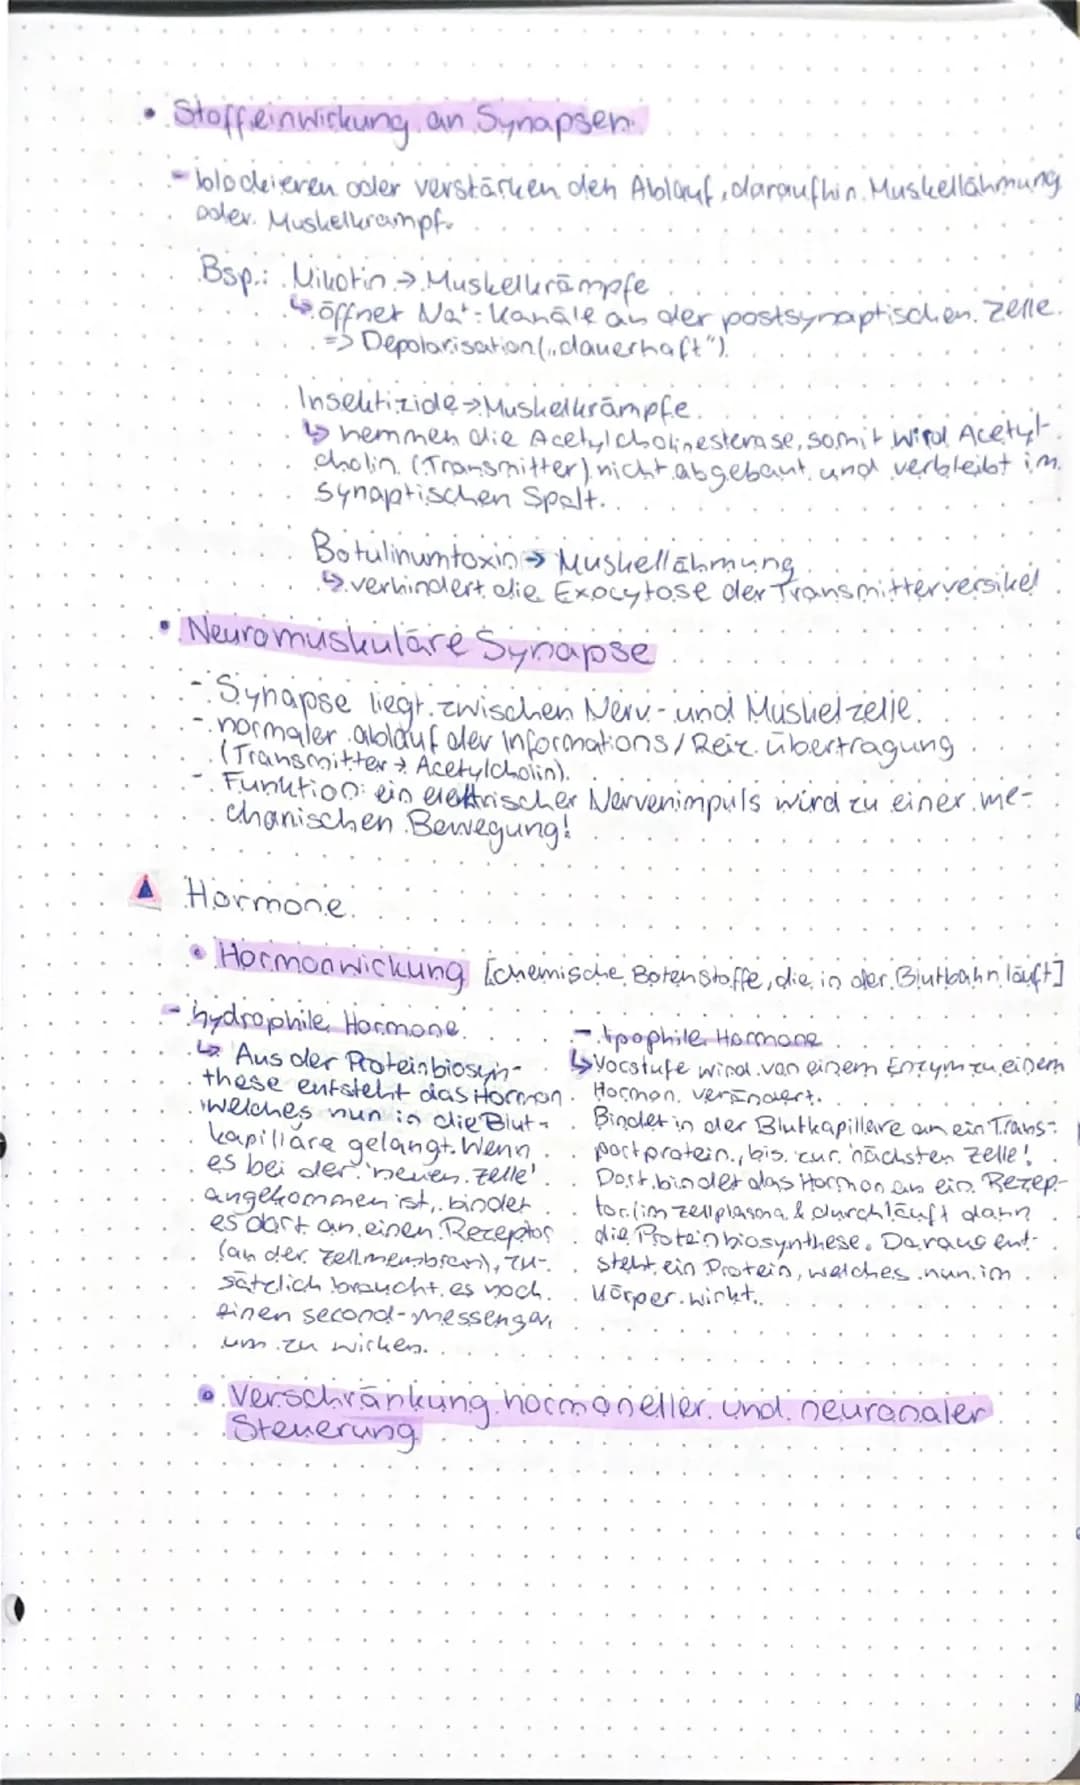 • Stoffeinwirkung an Synapsen
- blockieren oder verstärken den Ablauf, daraufhin Muskellähmung
oder Muskelkrampf.
Bsp.: Nikotin → Muskelkrämpfe
↳ öffnet Na⁺-Kanäle an der postsynaptischen Zelle.
=> Depolarisation („dauerhaft")
Insektizide → Muskelkrämpfe
↳ hemmen die Acetylcholinesterase, somit wird Acetyl-
cholin (Transmitter) nicht abgebaut und verbleibt im
synaptischen Spalt.
Botulinumtoxin → Muskellähmung
↳ verhindert die Exocytose der Transmitterversikel
• Neuromuskuläre Synapse
- Synapse liegt zwischen Nerv- und Muskelzelle.
- normaler ablauf der Informations/Reiz übertragung
(Transmitter → Acetylcholin).
- Funktion: ein elektrischer Nervenimpuls wird zu einer me-
chanischen Bewegung!
Hormone
• Hormonwirkung [chemische Botenstoffe, die in der Blutbahn läuft]
- hydrophile Hormone
↳ Aus der Proteinbiosyn-
these entsteht das Hormon
welches nun in die Blut-
kapilläre gelangt. Wenn
es bei der 'neuen Zelle'
angekommen ist, bindet
es dort an einen Rezeptor
(an der Zellmembran), zu-
sätzlich braucht es noch
einen second-messenger,
um zu wirken.
- lipophile Hormone
↳ Vorstufe wird von einem Enzym zu einem
Hormon verändert.
Bindet in der Blutkapilläre an ein Trans-
portprotein, bis zur 'nächsten Zelle'.
Dort bindet das Hormon an ein Rezep-
tor (im Zellplasma & durchläuft dann
die Proteinbiosynthese. Daraus ent-
steht ein Protein, welches nun im
Körper wirkt.
• Verschränkung hormoneller und neuronaler
Steuerung